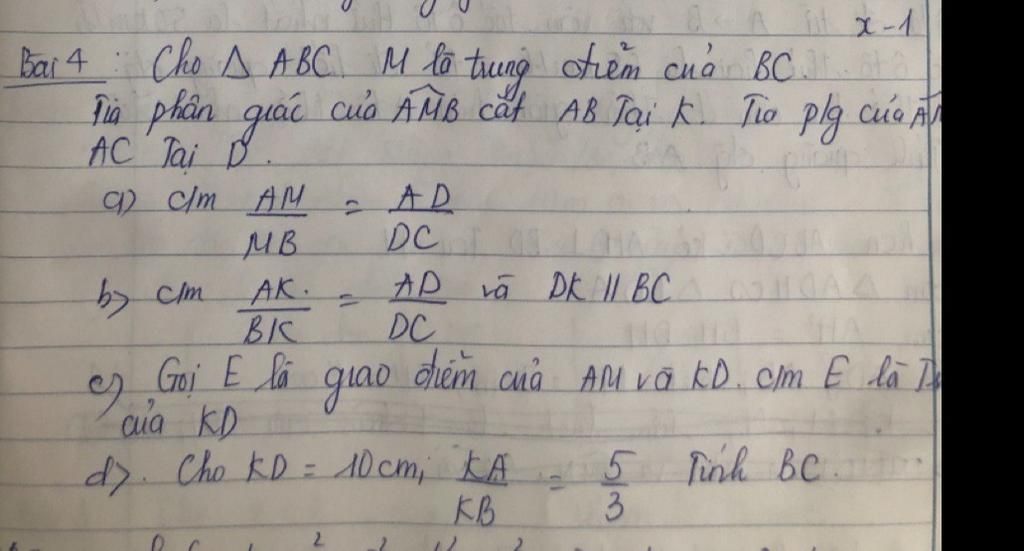 x-1
Bài 4 : Cho Δ ABC. M là trung điểm của BC.
Tia phân giác của AMB cắt AB Tại K. Tia p/g của
AC Tại D.
a) c/m AM/MB = AD/DC
b) c/m AK/BK = AD/DC và DK // BC
c) Gọi E là giao điểm của AM và KD. c/m E là
của KD
d) . Cho KD = 10cm; KA/KB = 5/3 Tính BC.